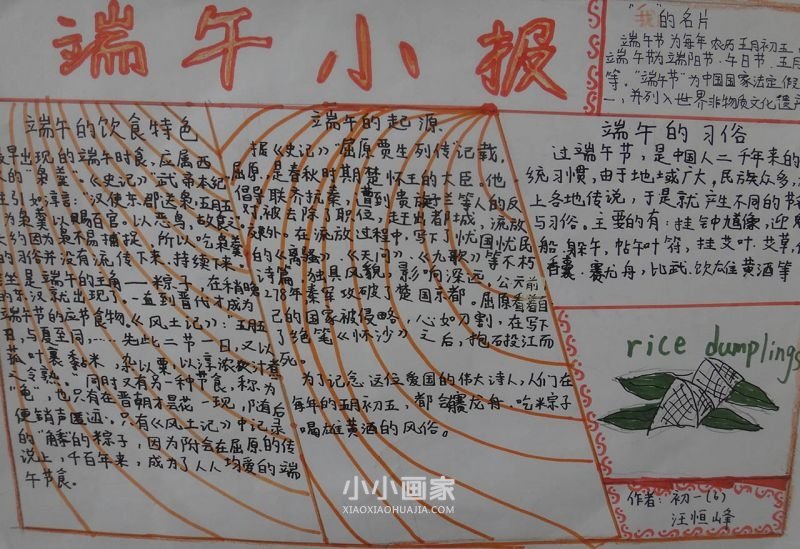 端午小报
"我"的名片
端午节为每年农历五月初五,
端午节为端阳节、午日节、五月
等。"端午节"为中国国家法定假
一,并列入世界非物质文化遗产
端午的饮食特色
早出现的端午时食,应属西
人的"枭羹"。《史记》"武帝本纪
引如淳言:汉使东郡送枭,五月五
为枭羹以赐百官,以恶鸟,故食之。
大约因为枭不易捕捉,所以吃枭羹
的习俗并没有流传下来,持续下来。
是端午的主角——粽子,在
的东汉就出现了。一直到晋代才成为
端午节的应节食物。《风土记》:五月五
与夏至同,……先此二节一日,又以
叶裹黏米,杂以粟,以淳浓灰汁煮
令熟。"同时又有另一种节食,称为
"龟",也只有在晋朝才昙花一现,随后
便销声匿迹,只有《风土记》中记录
的粽子,因为附会在屈原的传
说上,千百年来,成为了人人均爱的端
午节食。
端午的起源
据《史记》"屈原贾生列传记载,
屈原,是春秋时期楚怀王的大臣。他
倡导联齐抗秦,遭到贵族子兰等人的反
对,被去除了职位,赶出者城,流放
外。在流放过程中,写下了忧国忧民
的《离骚》《天问》、《九歌》等不朽
诗篇,独具风貌,影响深远。公元前
278年秦军攻破了楚国京都。屈原看着自
己的国家被侵略,心如刀割,在写下
绝笔《怀沙》之后,抱石投江而
死。
为了记念这位爱国的伟大诗人,人们在
每年的五月初五,都会赛龙舟、吃米粽子
、喝雄黄酒的风俗。
端午的习俗
过端午节,是中国人二千年来的
统习惯,由于地域广大,民族众多,
上各地传说,于是就产生不同的节
与习俗。主要的有:挂钟馗像,迎鬼
船、躲午,帖午叶符,挂艾叶、艾草、
香囊、赛龙舟,比武、饮雄黄酒等
rice dumplings
作者:初一(6)
汪恒峰
小小画家
XIAOXIAOHUAJIA.COM